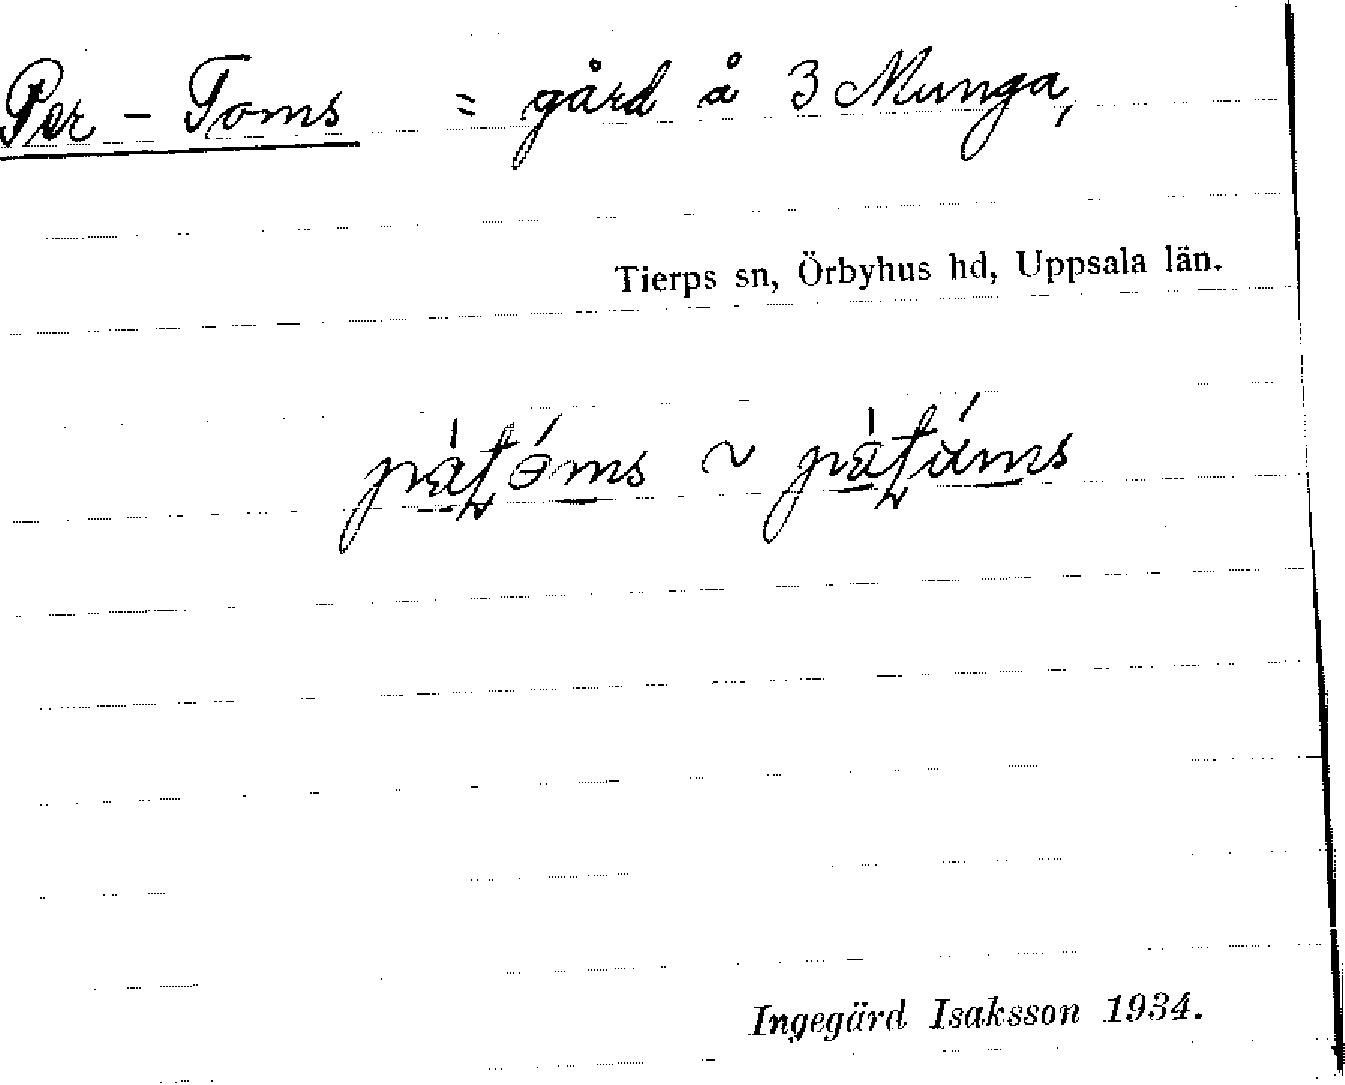 Per - Toms = gård å 3 Munga,
Tierps sn, Örbyhus hd, Uppsala län.
Ingegärd Isaksson 1934.